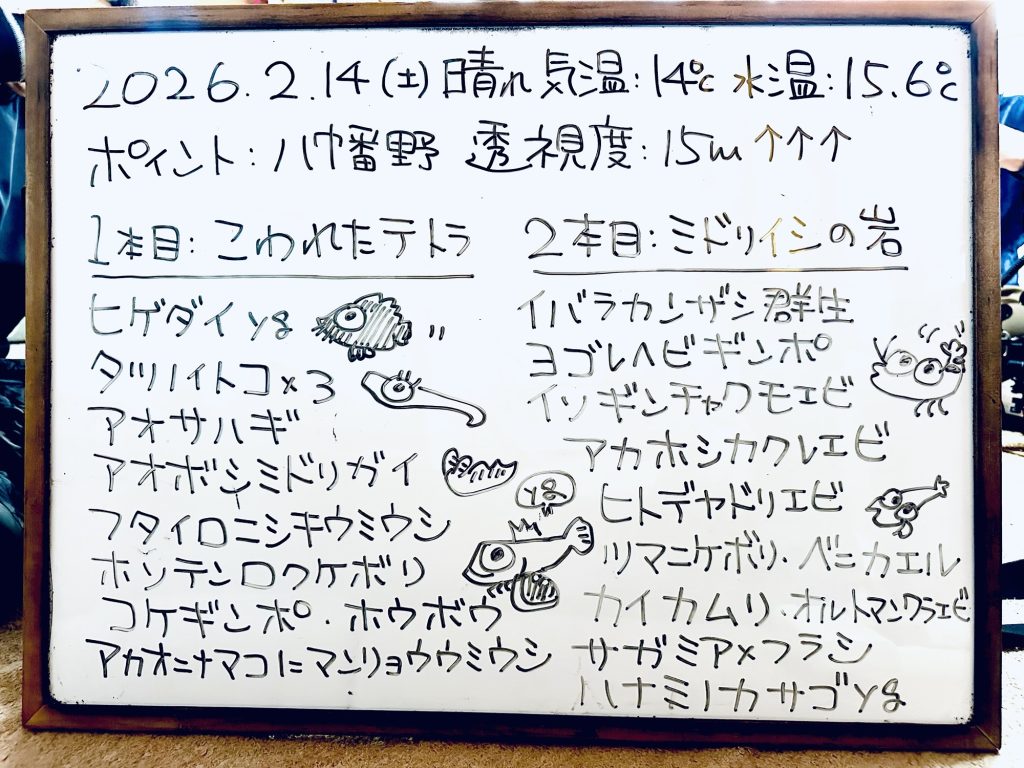 2026.2.14(土)晴れ 気温:14℃ 水温:15.6℃
ポイント:八幡野 透視度:15m↑↑↑
1本目:こわれたテトラ
ヒゲダイyg
タツノイトコ×3
アオサハギ
アオボシミドリガイ
yg
フタイロニシキウミウシ
ホソテンロクケボリ
コケギンポ・ホウボウ
アカオニナマコにマンリョウウミウシ
2本目:ミドリイシの岩
イバラカンザシ群生
ヨゴレヘビギンポ
イソギンチャクモエビ
アカホシカクレエビ
ヒトデヤドリエビ
ツマニケボリ・ベニカエル
カイカムリ・オルトマンワラエビ
サガミアメフラシ
ハナミノカサゴyg